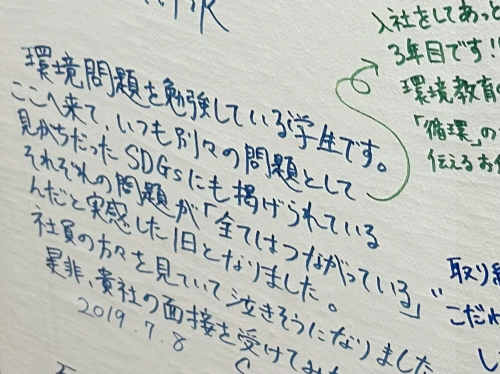 環境問題を勉強している学生です。
ここへ来て、いつも別々の問題として
見がちだったSDGsにも掲げられている
それぞれの問題が「全てはつながっている」
んだと実感した1日となりました。
社員の方々を見ていて泣きそうになりました
是非、貴社の面接を受けてみ
2019.7.8
入社をしてあっと
3年目です!
環境教育
「循環」の
伝えるお
取り
こだわ
し